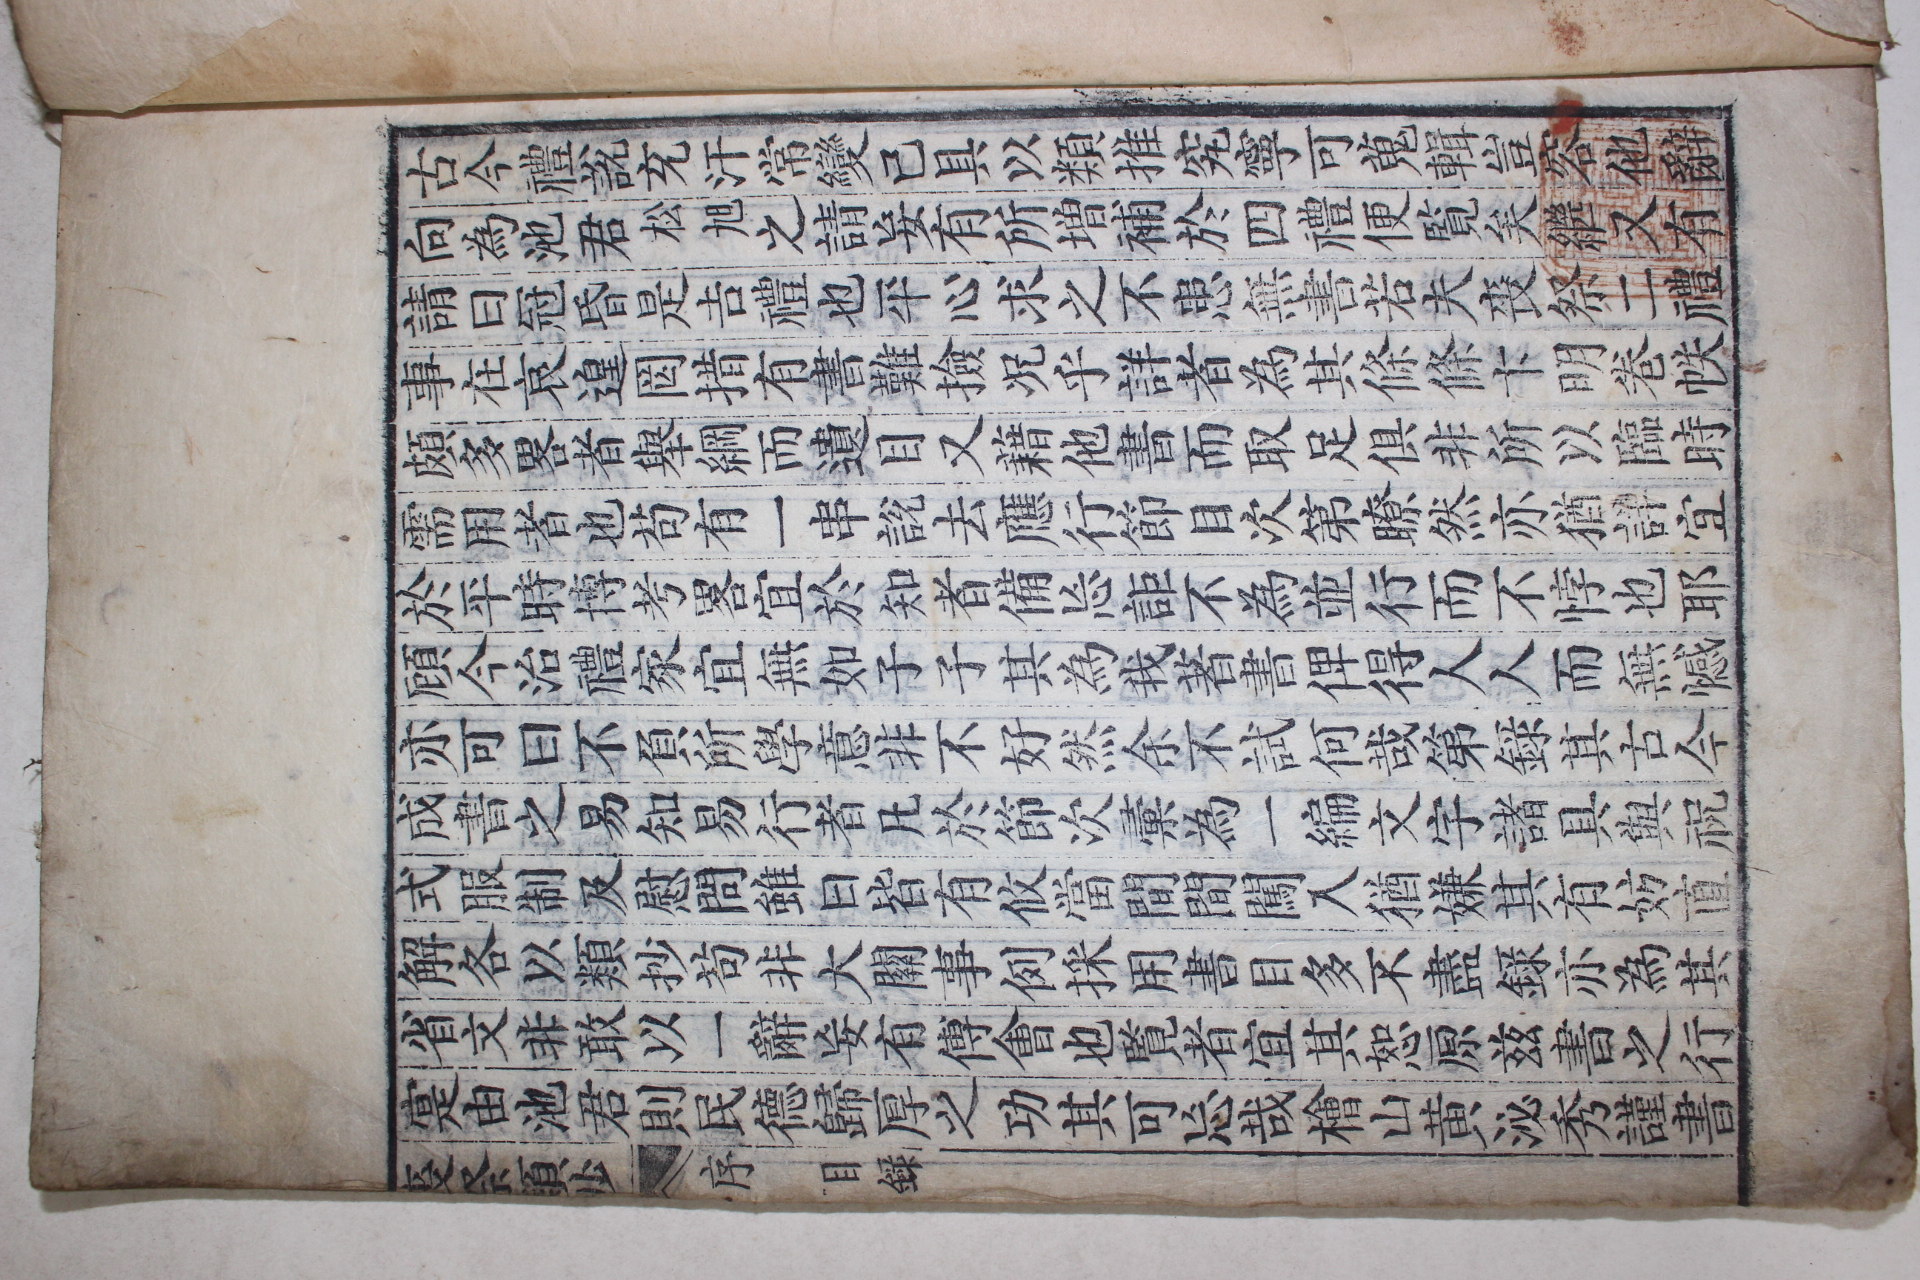 古今禮說充汗常變已具以類推究寧可蒐輯豈容他辭
向為池君松旭之請妄有所增補於四禮便覽矣繼又有
請曰冠昏是吉禮也平心求之不患無書若夫喪祭二禮
事在哀遑罔措有書難撿況乎詳者為其條條卞明卷帙
頗多畧者舉綱而遺目又藉他書而取足俱非所以臨時
需用者也苟有一串說去應行節目次第瞭然亦猶詳宜
於平時博考畧宜於知者備忘詎不為並行而不悖也耶
顧今治禮家宜無如子子其為我著書俾得人人而無憾
亦可曰不負所學意非不好然余不試何哉第錄其古今
成書之易知易行者凡於節次彙為一編文字諸具與祝
式服制及慰問雖曰皆有攸當間間闖入猶嫌其有妨直
解各以類抄苟非大關事例採用書目多不盡錄亦為其
省文非敢以一辭妄有傅會也覽者宜其恕原茲書之行
寔由池君則民德歸厚之功其可忘哉檜山黃泌秀謹書
喪祭類抄 序 目錄